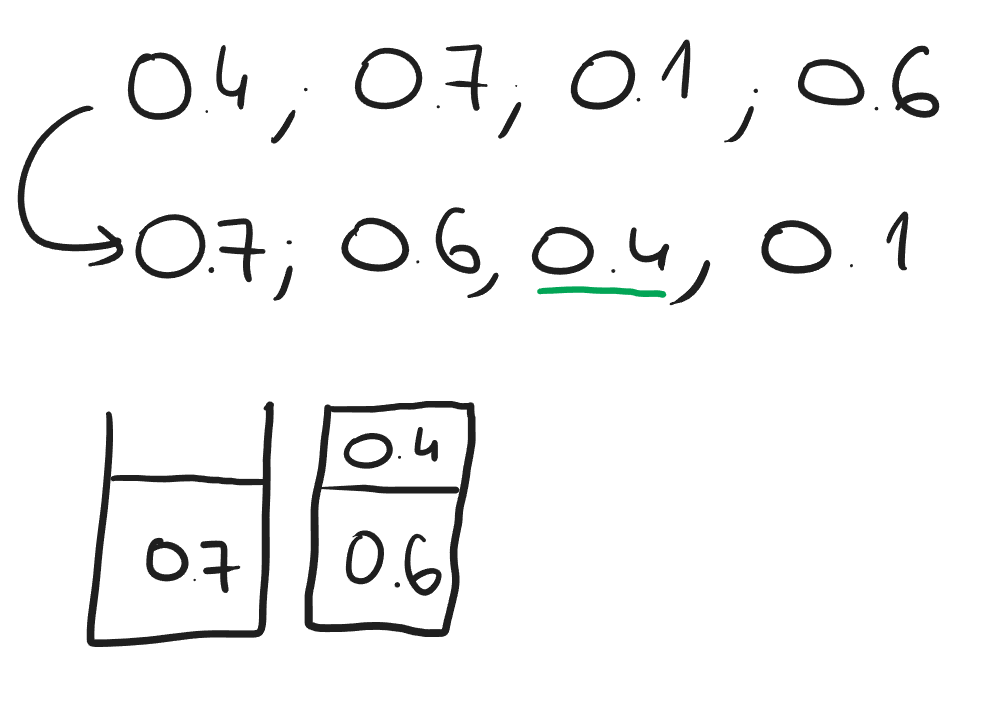 0.4; 0.7; 0.1; 0.6
0.7; 0.6, 0.4, 0.1
0.4
0.7 0.6